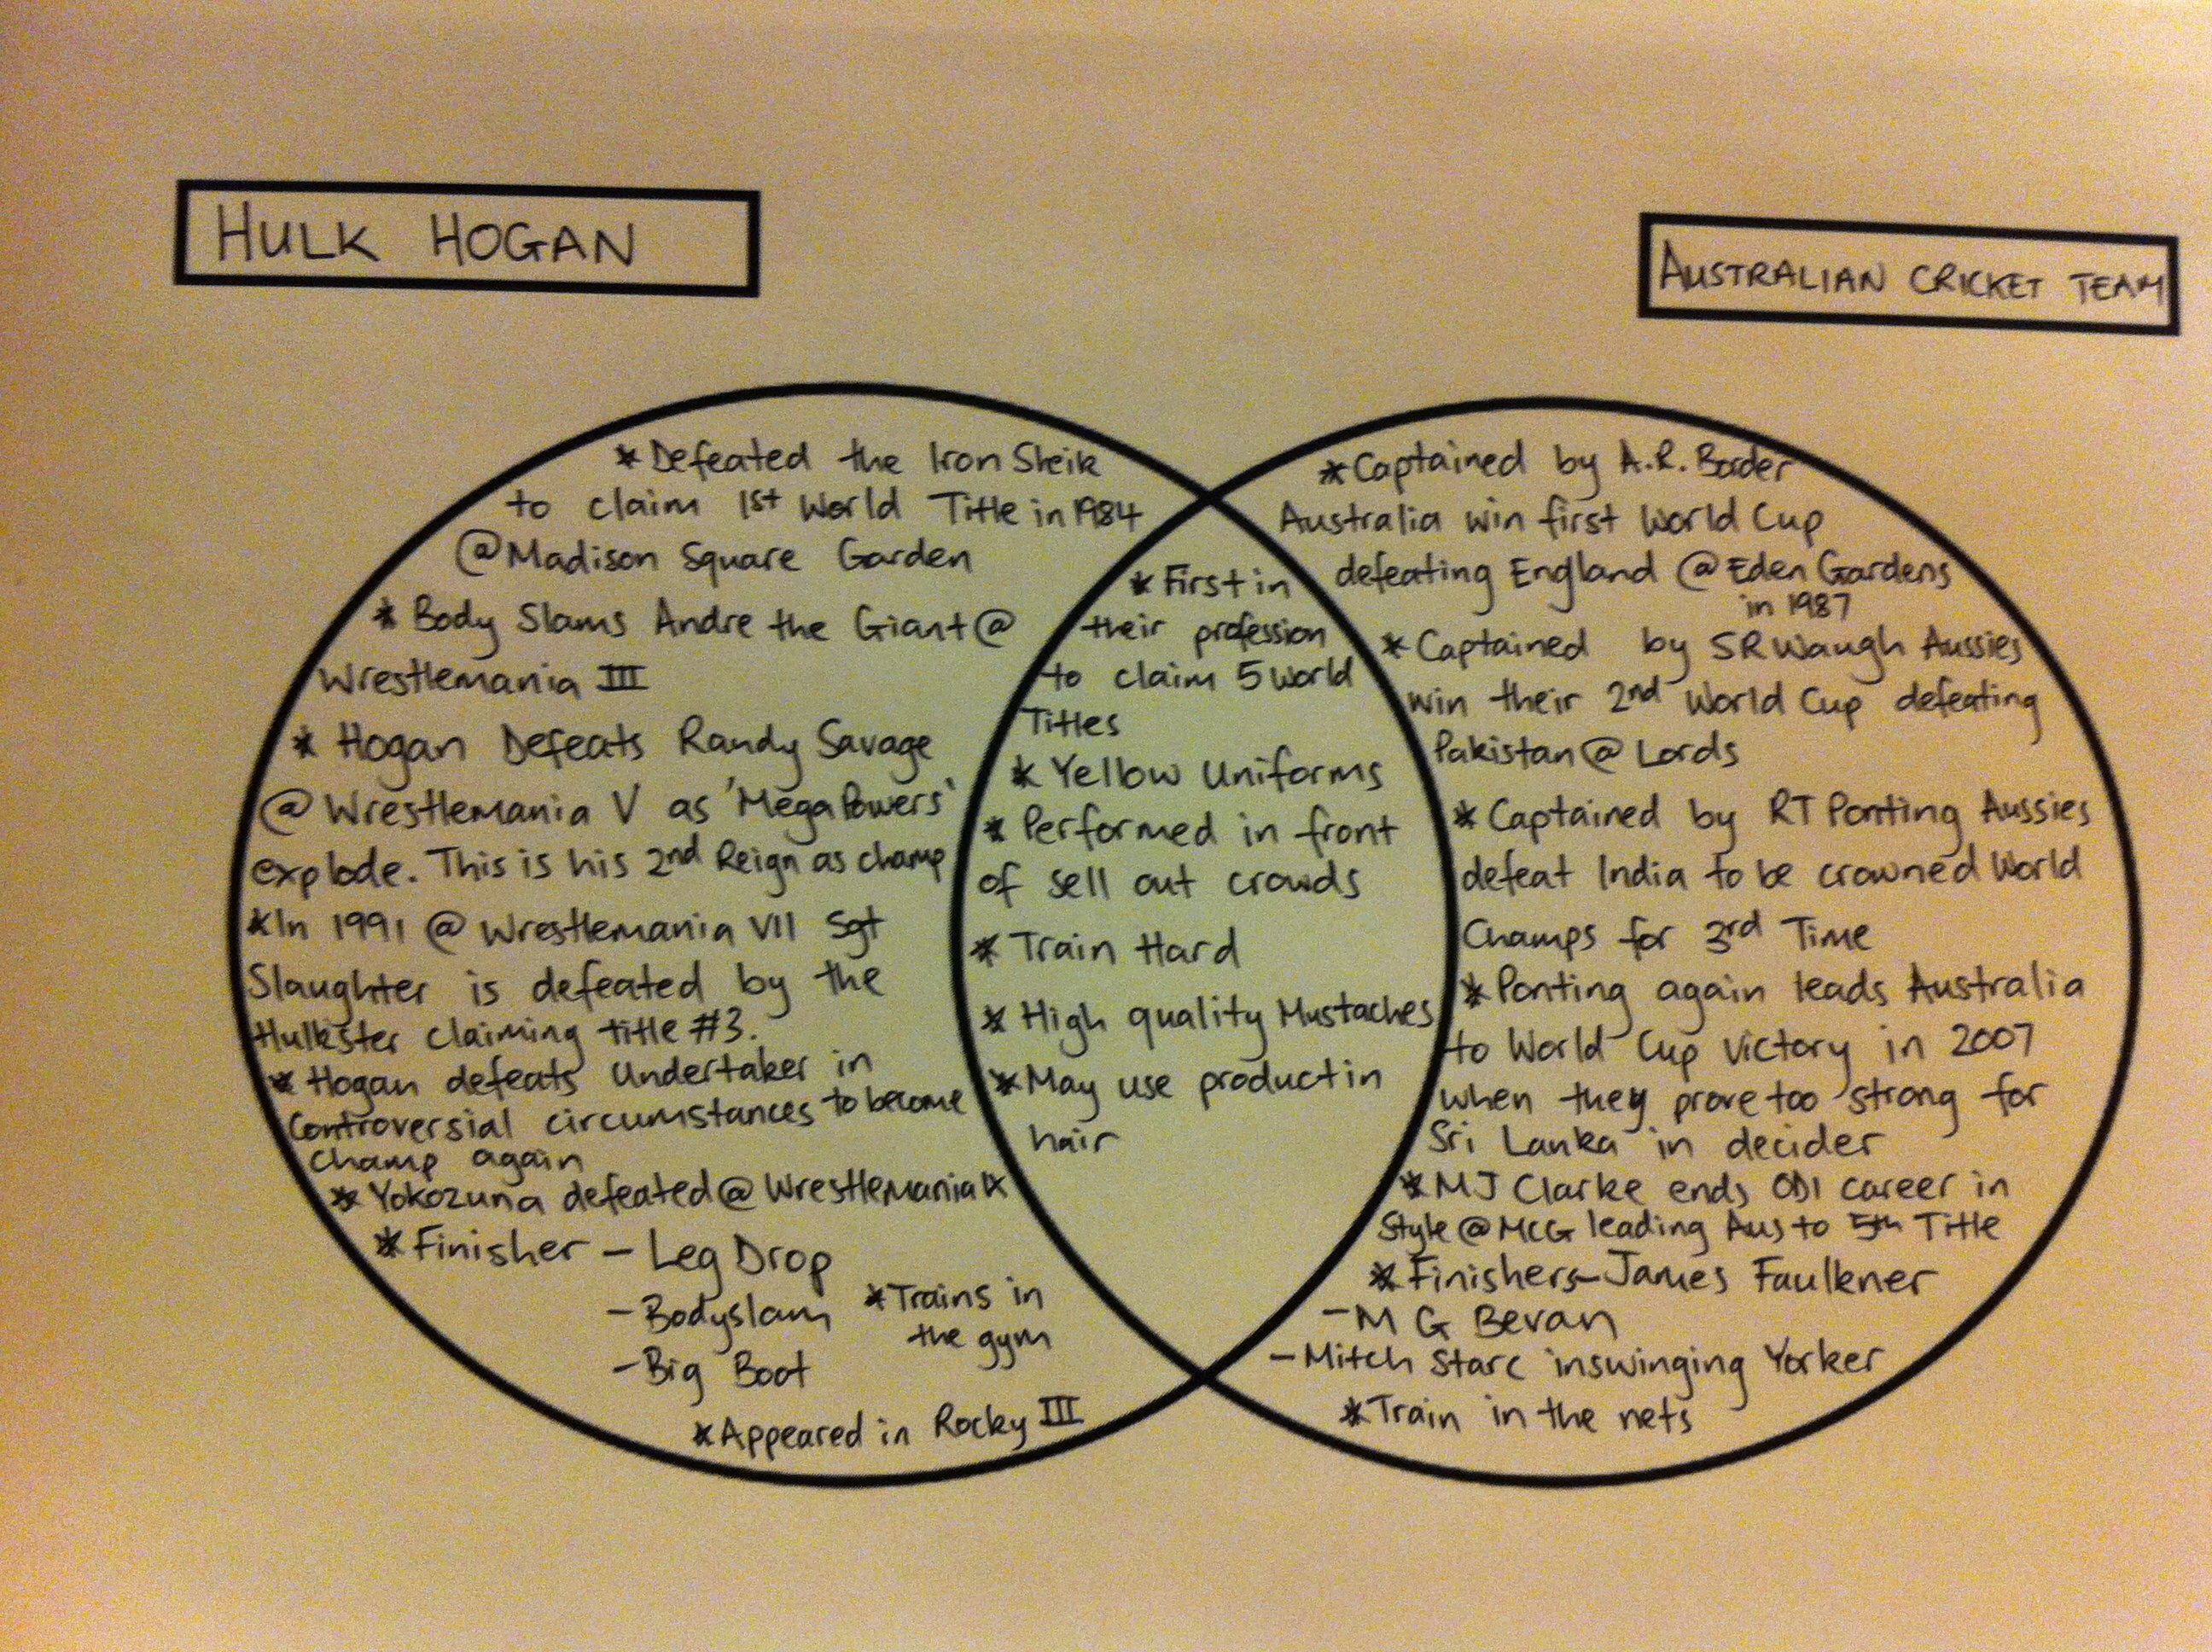 HULK HOGAN
AUSTRALIAN CRICKET TEAM
*Defeated the Iron Sheik
to claim 1st World Title in 1984
@Madison Square Garden
* Body Slams Andre the Giant@
Wrestlemania III
* Hogan Defeats Randy Savage
@ Wrestlemania V as 'Mega Powers'
explode. This is his 2nd Reign as champ
*In 1991 @ Wrestlemania VII Sgt
Slaughter is defeated by the
Hulkster claiming title #3.
* Hogan defeats Undertaker in
controversial circumstances to become
champ again
* Yokozuna defeated@ Wrestlemania IX
*Finisher - Leg Drop
-Bodyslam
-Big Boot
*Trains in
the gym
*Appeared in Rocky III
* First in
their profession
to claim 5 World
Titles
* Yellow Uniforms
* Performed in front
of sell out crowds
* Train Hard
* High quality Mustaches
*May use product in
hair
*Captained by A.R. Border
Australia win first World Cup
defeating England @ Eden Gardens
in 1987
*Captained by SR Waugh Aussies
win their 2nd World Cup defeating
Pakistan@ Lords
*Captained by RT Ponting Aussies
defeat India to be crowned World
Champs for 3rd Time
*Ponting again leads Australia
to World Cup victory in 2007
when they prove too strong for
Sri Lanka in decider
*MJ Clarke ends ODI career in
Style@MCG leading Aus to 5th Title
*Finishers-James Faulkner
-M G Bevan
-Mitch Starc inswinging Yorker
*Train in the nets